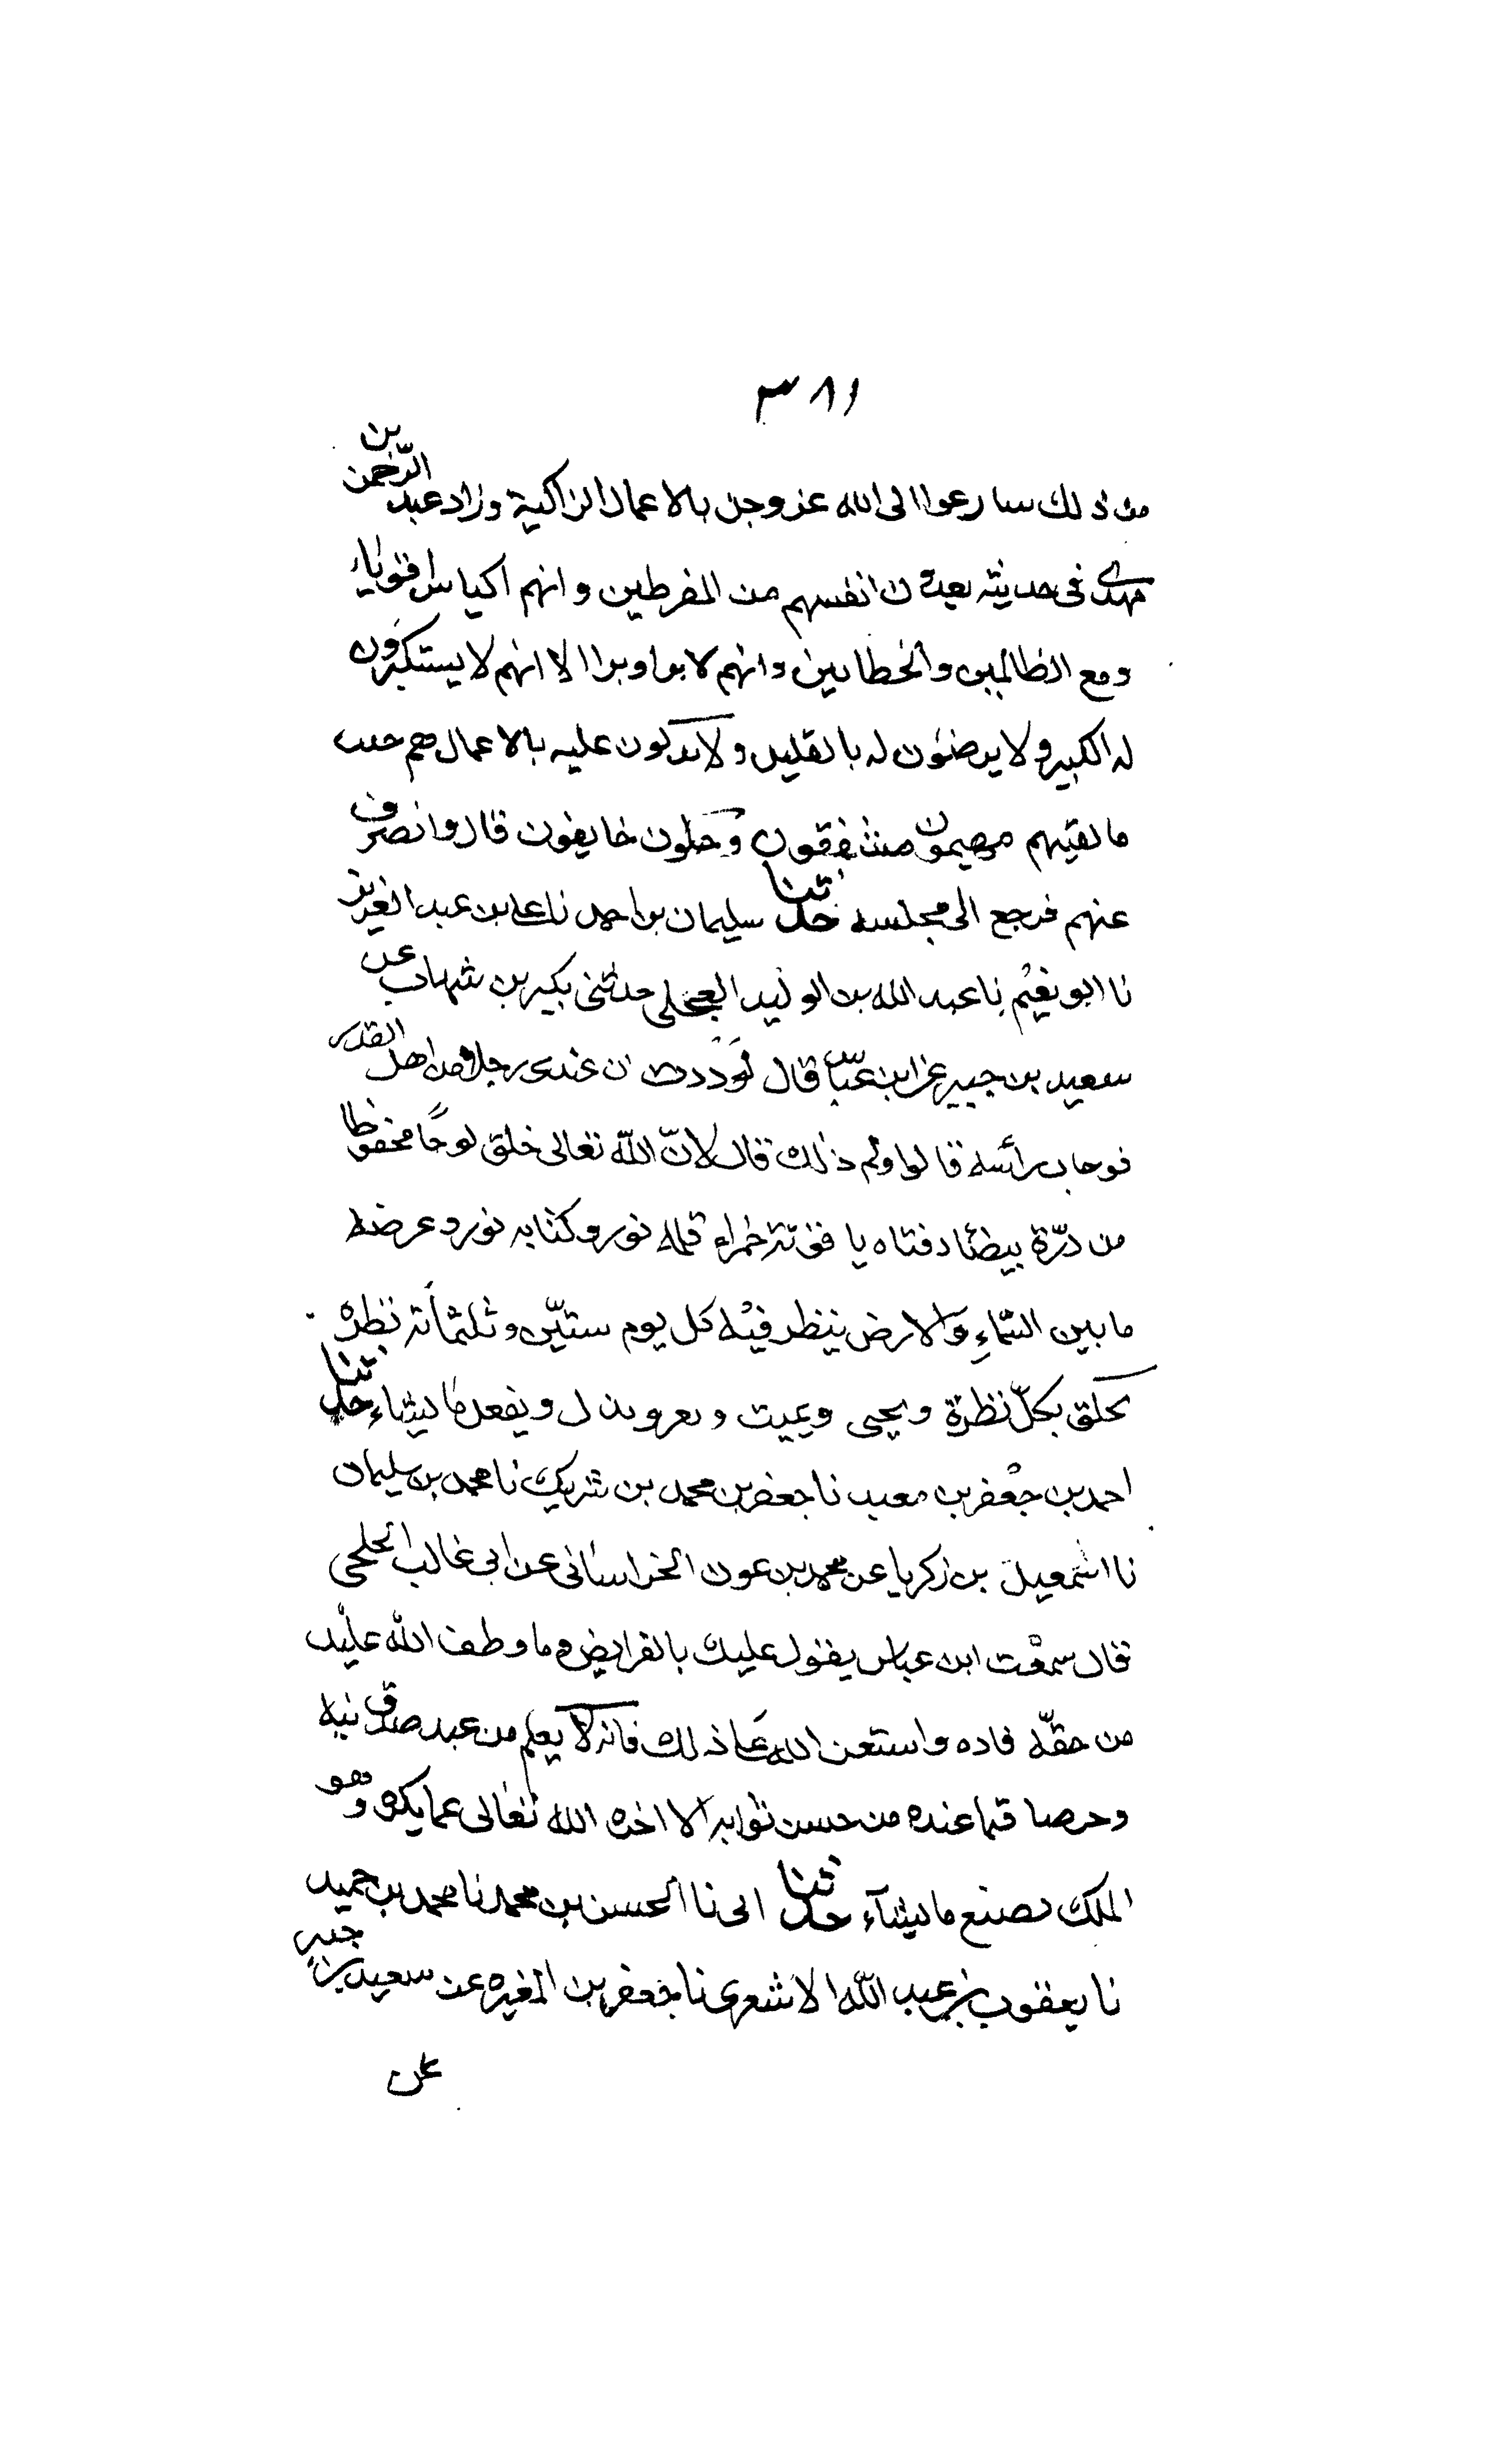 ٣٨١
من ذلك سارعوا الى الله عز وجل بالاعمال الزاكية وزاد عبد الرحمن بن
مهدى فى حديثه يعدون انفسهم من المفرطين وانهم اكياس اقوياء
ومع الظالمين والخطايين وانهم لابرار برا الا انهم لا يستكبرون
له الكبير ولا يرضون له بالقليل ولا يدلون عليه بالاعمال هم حيث
ما لقيهم مهيمون مشفقون وجلون خايفون قال وانصرف
عنهم فرجع الى مجلسه حدثنا سليمان بن احمد نا على بن عبد العزيز
نا ابو نعيم نا عبد الله بن الوليد العجلى حدثنى بكير بن شهاب عن
سعيد بن جبير عن ابن عباس قال لوددت ان عندى رجلا من اهل القدر
فوجات رأسه قالوا ولم ذلك قال لانّ الله تعالى خلق لوحًا محفوظا
من درّة بيضا دفتاه ياقوتة حمراء قلمه نور وكتابه نور وعرضه
ما بين السّماءِ والارض ينظر فيه كل يوم ستّين وثلثمأته نظرة
يخلق بكلّ نظرة ويحيى ويميت ويعز ويذل ويفعل ما يشاء حدثنا
احمد بن جعفر بن معبد نا جعفر بن محمد بن شريك نا محمد بن سليمان
نا اسمعيل بن زكريا عن محمد بن عون الخراسانى عن ابى غالب الخلجى
قال سمعت ابن عباس يقول عليك بالفرايض وما وظف الله عليك
من حقّه فاده واستعن الله على ذلك فانه لا يعلم من عبد صدق نيه
وحرصا فيما عنده من حسن ثوابه الا اخره الله تعالى عما يكره وهو
الملك يصنع ما يشآء حدثنا ابى نا الحسن بن محمد نا محمد بن حميد
نا يعقوب بن عبد الله الاشعرى نا جعفر بن المغيره عن سعيد بن جبير
عن